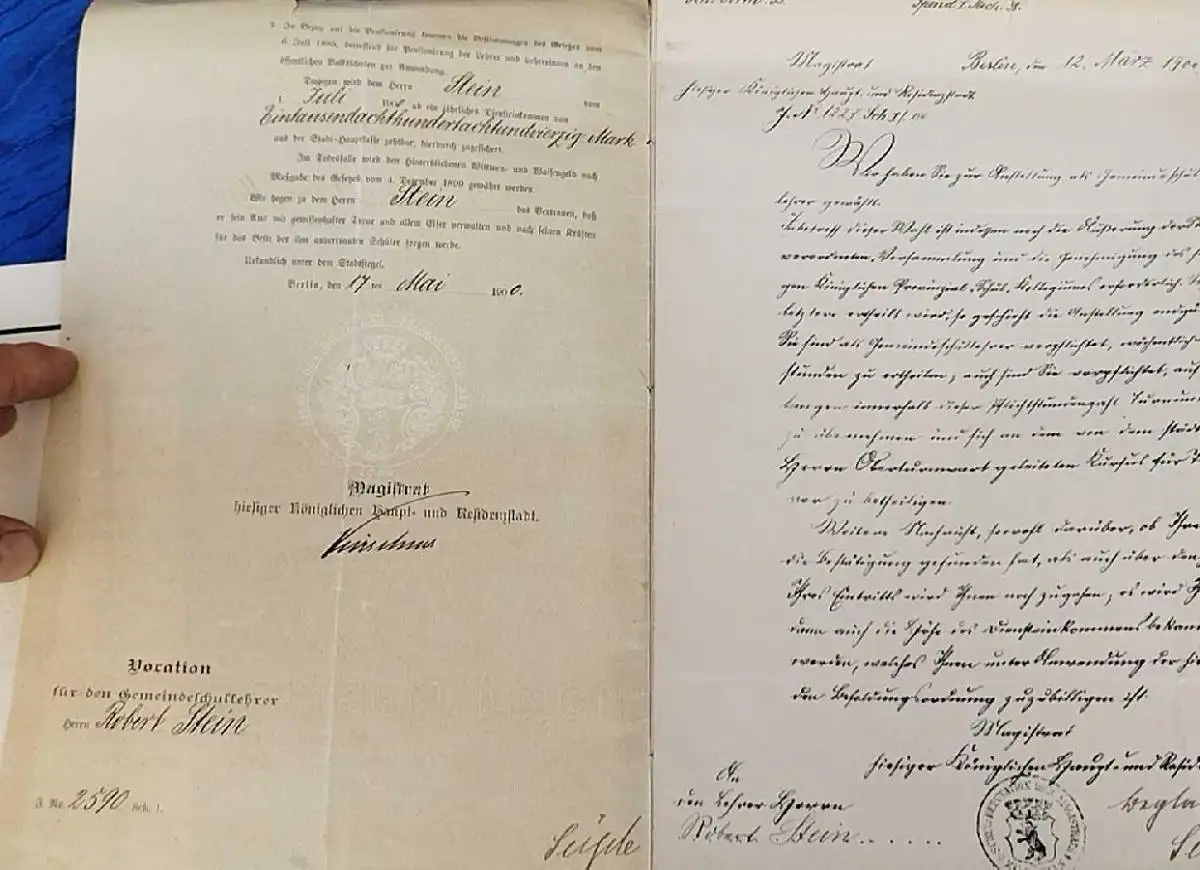 2. In Bezug auf die Pensionirung kommen die Bestimmungen des Gesetzes vom
6. Juli 1885, betreffend die Pensionirung der Lehrer und Lehrerinnen an den
öffentlichen Volksschulen zur Anwendung.
Dagegen wird dem Herrn Stein vom
1. Juli ab ein jährliches Diensteinkommen von
Eintausendachthundertachtundvierzig Mark
aus der Stadt-Hauptkasse zahlbar, hierdurch zugesichert.
Im Todesfalle wird den Hinterbliebenen Wittwen- und Waisengeld nach
Maßgabe des Gesetzes vom 4. Dezember 1899 gewährt werden.
Wir hegen zu dem Herrn Stein das Vertrauen, daß
er sein Amt mit gewissenhafter Treue und allem Eifer verwalten und nach seinen Kräften
für das Beste der ihm anvertrauten Schüler sorgen werde.
Urkundlich unter dem Stadtsiegel.
Berlin, den 17 ten Mai 1900.
Magistrat
hiesiger Königlichen Haupt- und Residenzstadt.
Kirschner
Vocation
für den Gemeindeschullehrer
Herrn Robert Stein
J. No. 2590 Sch. I.
Magistrat Berlin, den 12. März 1900
hiesiger Königlichen Haupt- und Residenzstadt.
Wir haben Sie zur Anstellung als Gemeindeschul
lehrer gewählt.
Betreff dieser Wahl ist indessen noch die Äußerung der
verordneten-Versammlung und die Genehmigung des
gen Königlichen Provinzial-Schul-Kollegiums erforderlich.
letztere ertheilt wird, so geschieht die Anstellung
Sie sind als Gemeindeschullehrer verpflichtet, wöchentlich
stunden zu ertheilen; auch sind Sie verpflichtet, auf
langen innerhalb dieser Pflichtstundenzahl
zu übernehmen und sich an dem von dem städt
Herrn Oberturnwart geleiteten Kursus für
zu betheiligen.
Weitere Nachricht, sowohl darüber, ob Ihre
die Bestätigung gefunden hat, als auch über den
Ihres Eintritts wird Ihnen noch zugehen; es wird
dann auch die Höhe des Diensteinkommens bekannt
werden, welches Ihnen unter Anwendung der
den Besoldungsordnung zuzubilligen ist.
Magistrat
hiesiger Königlichen Haupt- und Resid
An
den Lehrer Herrn
Robert Stein
begla